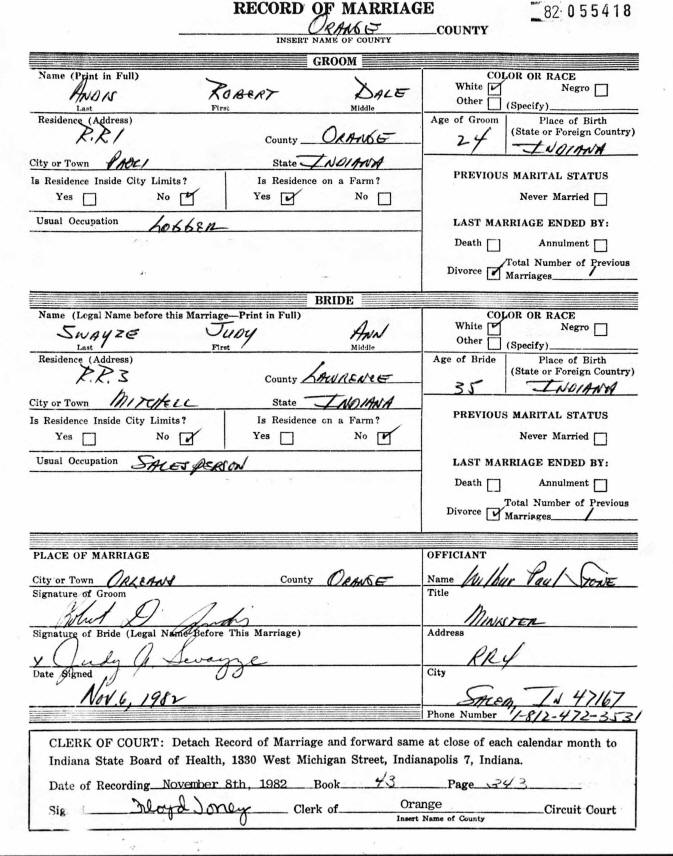 RECORD OF MARRIAGE
82 055418
ORANGE COUNTY
INSERT NAME OF COUNTY
GROOM
Name (Print in Full)
ANDIS ROBERT DALE
Last First Middle
COLOR OR RACE
White ☑ Negro ☐
Other ☐ (Specify)
Residence (Address)
R.R1
County ORANGE
Age of Groom
24
Place of Birth
(State or Foreign Country)
INDIANA
City or Town PAOLI State INDIANA
Is Residence Inside City Limits?
Yes ☐ No ☑
Is Residence on a Farm?
Yes ☑ No ☐
PREVIOUS MARITAL STATUS
Never Married ☐
Usual Occupation LOGGER
LAST MARRIAGE ENDED BY:
Death ☐ Annulment ☐
Divorce ☑ Total Number of Previous
Marriages 1
BRIDE
Name (Legal Name before this Marriage—Print in Full)
SWAYZE JUDY ANN
Last First Middle
COLOR OR RACE
White ☑ Negro ☐
Other ☐ (Specify)
Residence (Address)
R.R.3
County LAWRENCE
Age of Bride
35
Place of Birth
(State or Foreign Country)
INDIANA
City or Town MITCHELL State INDIANA
Is Residence Inside City Limits?
Yes ☐ No ☑
Is Residence on a Farm?
Yes ☐ No ☑
PREVIOUS MARITAL STATUS
Never Married ☐
Usual Occupation SALESPERSON
LAST MARRIAGE ENDED BY:
Death ☐ Annulment ☐
Divorce ☑ Total Number of Previous
Marriages 1
PLACE OF MARRIAGE
City or Town ORLEANS County ORANGE
Signature of Groom
Robert D. Andis
Signature of Bride (Legal Name Before This Marriage)
x Judy A. Swayze
Date Signed
Nov. 6, 1982
OFFICIANT
Name Wilbur Paul STONE
Title
MINISTER
Address
RR4
City
SALEM, IN 47167
Phone Number 1-812-472-3531
CLERK OF COURT: Detach Record of Marriage and forward same at close of each calendar month to
Indiana State Board of Health, 1330 West Michigan Street, Indianapolis 7, Indiana.
Date of Recording November 8th, 1982 Book 43 Page 343
Sig Floyd Jones Clerk of Orange Circuit Court
Insert Name of County